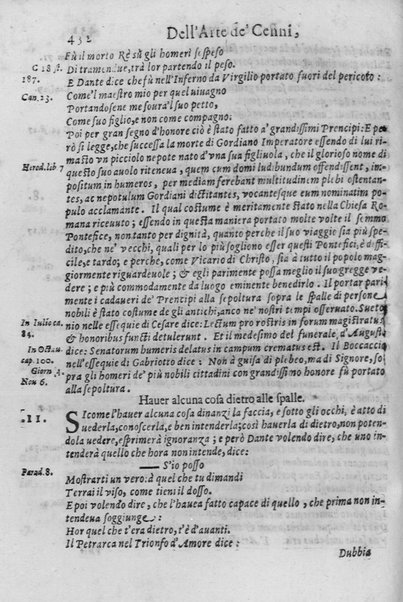 452 Dell'Arte de' Cenni,
Fù il morto Rè sù gli homeri sospeso
C 18 st. Di tramendue, trà lor partendo il peso.
187. E Dante dice che fù nell'Inferno da Virgilio portato fuori del pericolo:
Can. 23. Come'l maestro mio per quel viuagno
Portandosene me soura'l suo petto,
Come suo figlio, e non come compagno:
Poi per gran segno d'honore ciò è stato fatto a' grandissimi Prencipi: E però
si legge, che successa la morte di Gordiano Imperatore essendo di lui ri-
masto vn picciolo nepote nato d'vna sua figliuola, che il glorioso nome di
Herod. lib 7 questo suo auolo riteneua, quem cum domi ludibundum offendissent, im-
positum in humeros, per mediam ferebant multitudinem pichi ostentan-
tes, ac nepotulum Gordiani dictitantes, vocantesque eum nominatim po-
pulo acclamante. Il qual costume è meritamente stato nella Chiesa Ro-
mana riceuuto; essendo in questa maniera portato molte volte il sommo
Pontefice, non tanto per dignità, quanto perche il suo viaggio sia più spe-
dito, che ne' vecchi, quali per lo più sogliono esser questi Pontefici, è diffi-
cile, e tardo; e perche, come Vicario di Christo, sia à tutto il popolo mag-
giormente riguardeuole; & egli parimente possa meglio il suo gregge ve-
dere; e più commodamente da luogo eminente benedirlo. Il portar pari-
mente i cadaueri de' Prencipi alla sepoltura sopra le spalle di persone
nobili è stato costume degli antichi, anco ne' nostri tempi osseruato. Sueto-
In Iulio ca. nio nelle essequie di Cesare dice: Lectum pro rostris in forum magistratus
84. & honoribus functi detulerunt. Et il medesimo del funerale d'Augusto
In Octau. dice: Senatorum humeris delatus in campum crematus est. Il Boccaccio
cap. 100. nell'essequie di Gabriotto dice: Non à guisa di plebeo, ma di Signore, so-
Giorn 4. pra gli homeri de' più nobili cittadini con grandissimo honore fù portato
Nou 6. alla sepoltura.
Hauer alcuna cosa dietro alle spalle.
.II. Sicome l'hauer alcuna cosa dinanzi la faccia, e sotto gli occhi, è atto di
vederla, conoscerla, e ben intenderla; così hauerla di dietro, non poten-
dola vedere, esprimerà ignoranza; e però Dante volendo dire, che uno in-
tenderà quello che hora non intende, dice:
S'io posso
Parad. 8. Mostrarti un vero: à quel che tu dimandi
Terrai il viso, come tieni il dosso.
E poi volendo dire, che l'hauea fatto capace di quello, che prima non in-
tendeua soggiunge:
Hor quel che t'era dietro, t'è d'auanti.
Il Petrarca nel Trionfo d'Amore dice:
Dubbia